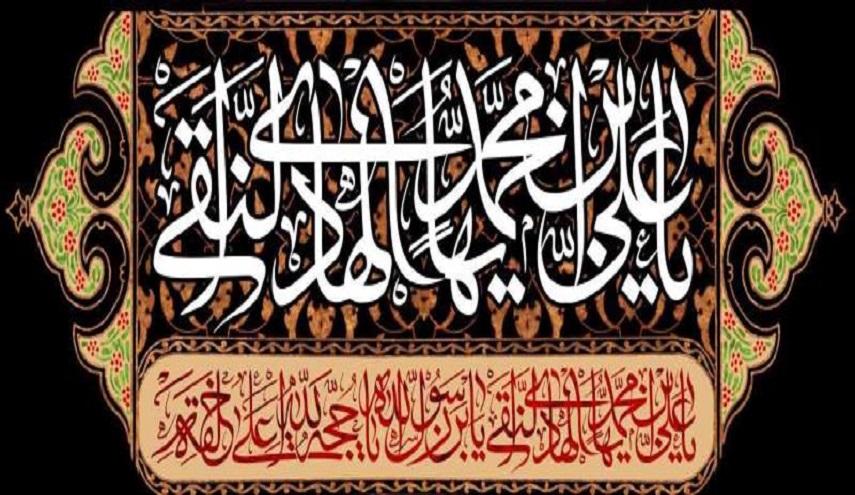 يا علي بن محمد ايها الهادي النقي
يا علي بن محمد ايها الهادي النقي يابن رسول الله يا حجة الله على خلقه